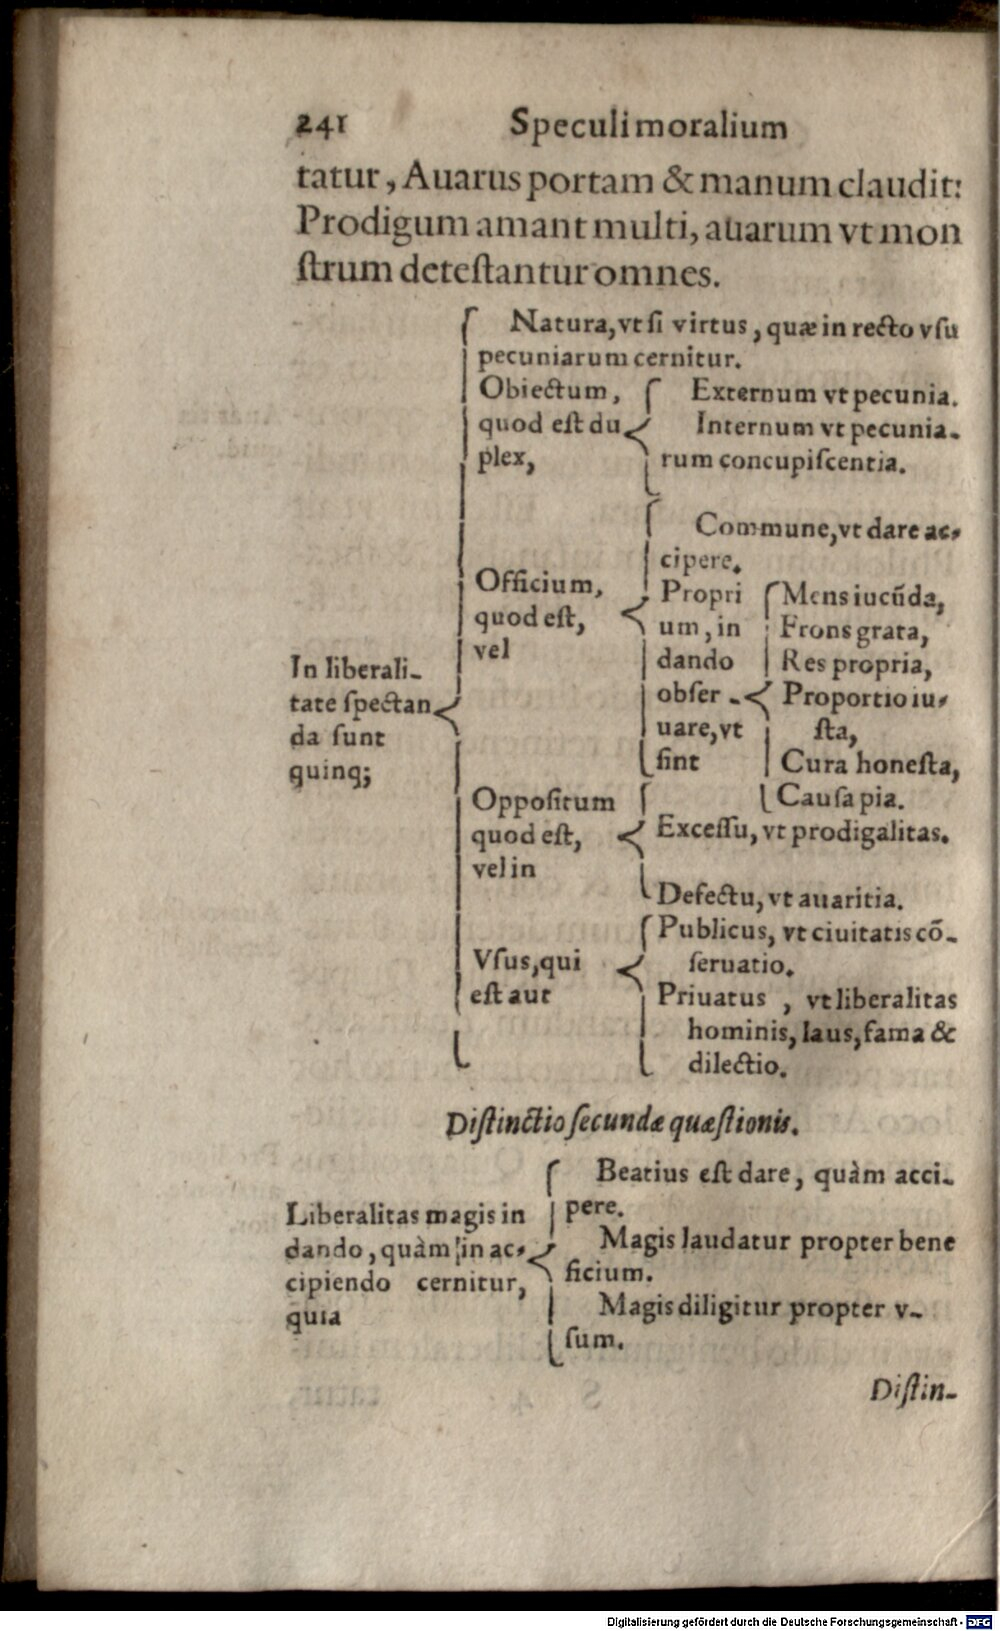 241 Speculi moralium
tatur, Auarus portam & manum claudit:
Prodigum amant multi, auarum vt mon
strum detestantur omnes.
Natura, vt si virtus, quæ in recto vsu
pecuniarum cernitur.
Obiectum,
quod est du
plex,
Externum vt pecunia.
Internum vt pecunia-
rum concupiscentia.
In liberali-
tate spectan
da sunt
quinq;
Officium,
quod est,
vel
Commune, vt dare ac-
cipere.
Propri
um, in
dando
obser-
uare, vt
sint
Mens iucũda,
Frons grata,
Res propria,
Proportio iu-
sta,
Cura honesta,
Causa pia.
Oppositum
quod est,
vel in
Excessu, vt prodigalitas.
Defectu, vt auaritia.
Vsus, qui
est aut
Publicus, vt ciuitatis cõ-
seruatio.
Priuatus, vt liberalitas
hominis, laus, fama &
dilectio.
Distinctio secundæ quæstionis.
Liberalitas magis in
dando, quàm in ac-
cipiendo cernitur,
quia
Beatius est dare, quàm acci-
pere.
Magis laudatur propter bene
ficium.
Magis diligitur propter v-
sum.
Distin-
Digitalisierung gefördert durch die Deutsche Forschungsgemeinschaft - DFG